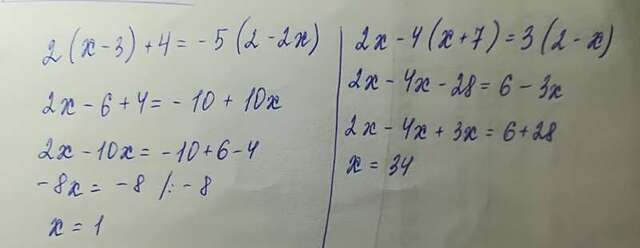 2(x-3)+4=-5(2-2x)
2x-6+4=-10+10x
2x-10x=-10+6-4
-8x=-8 /:-8
x=1
2x-4(x+7)=3(2-x)
2x-4x-28=6-3x
2x-4x+3x=6+28
x=34